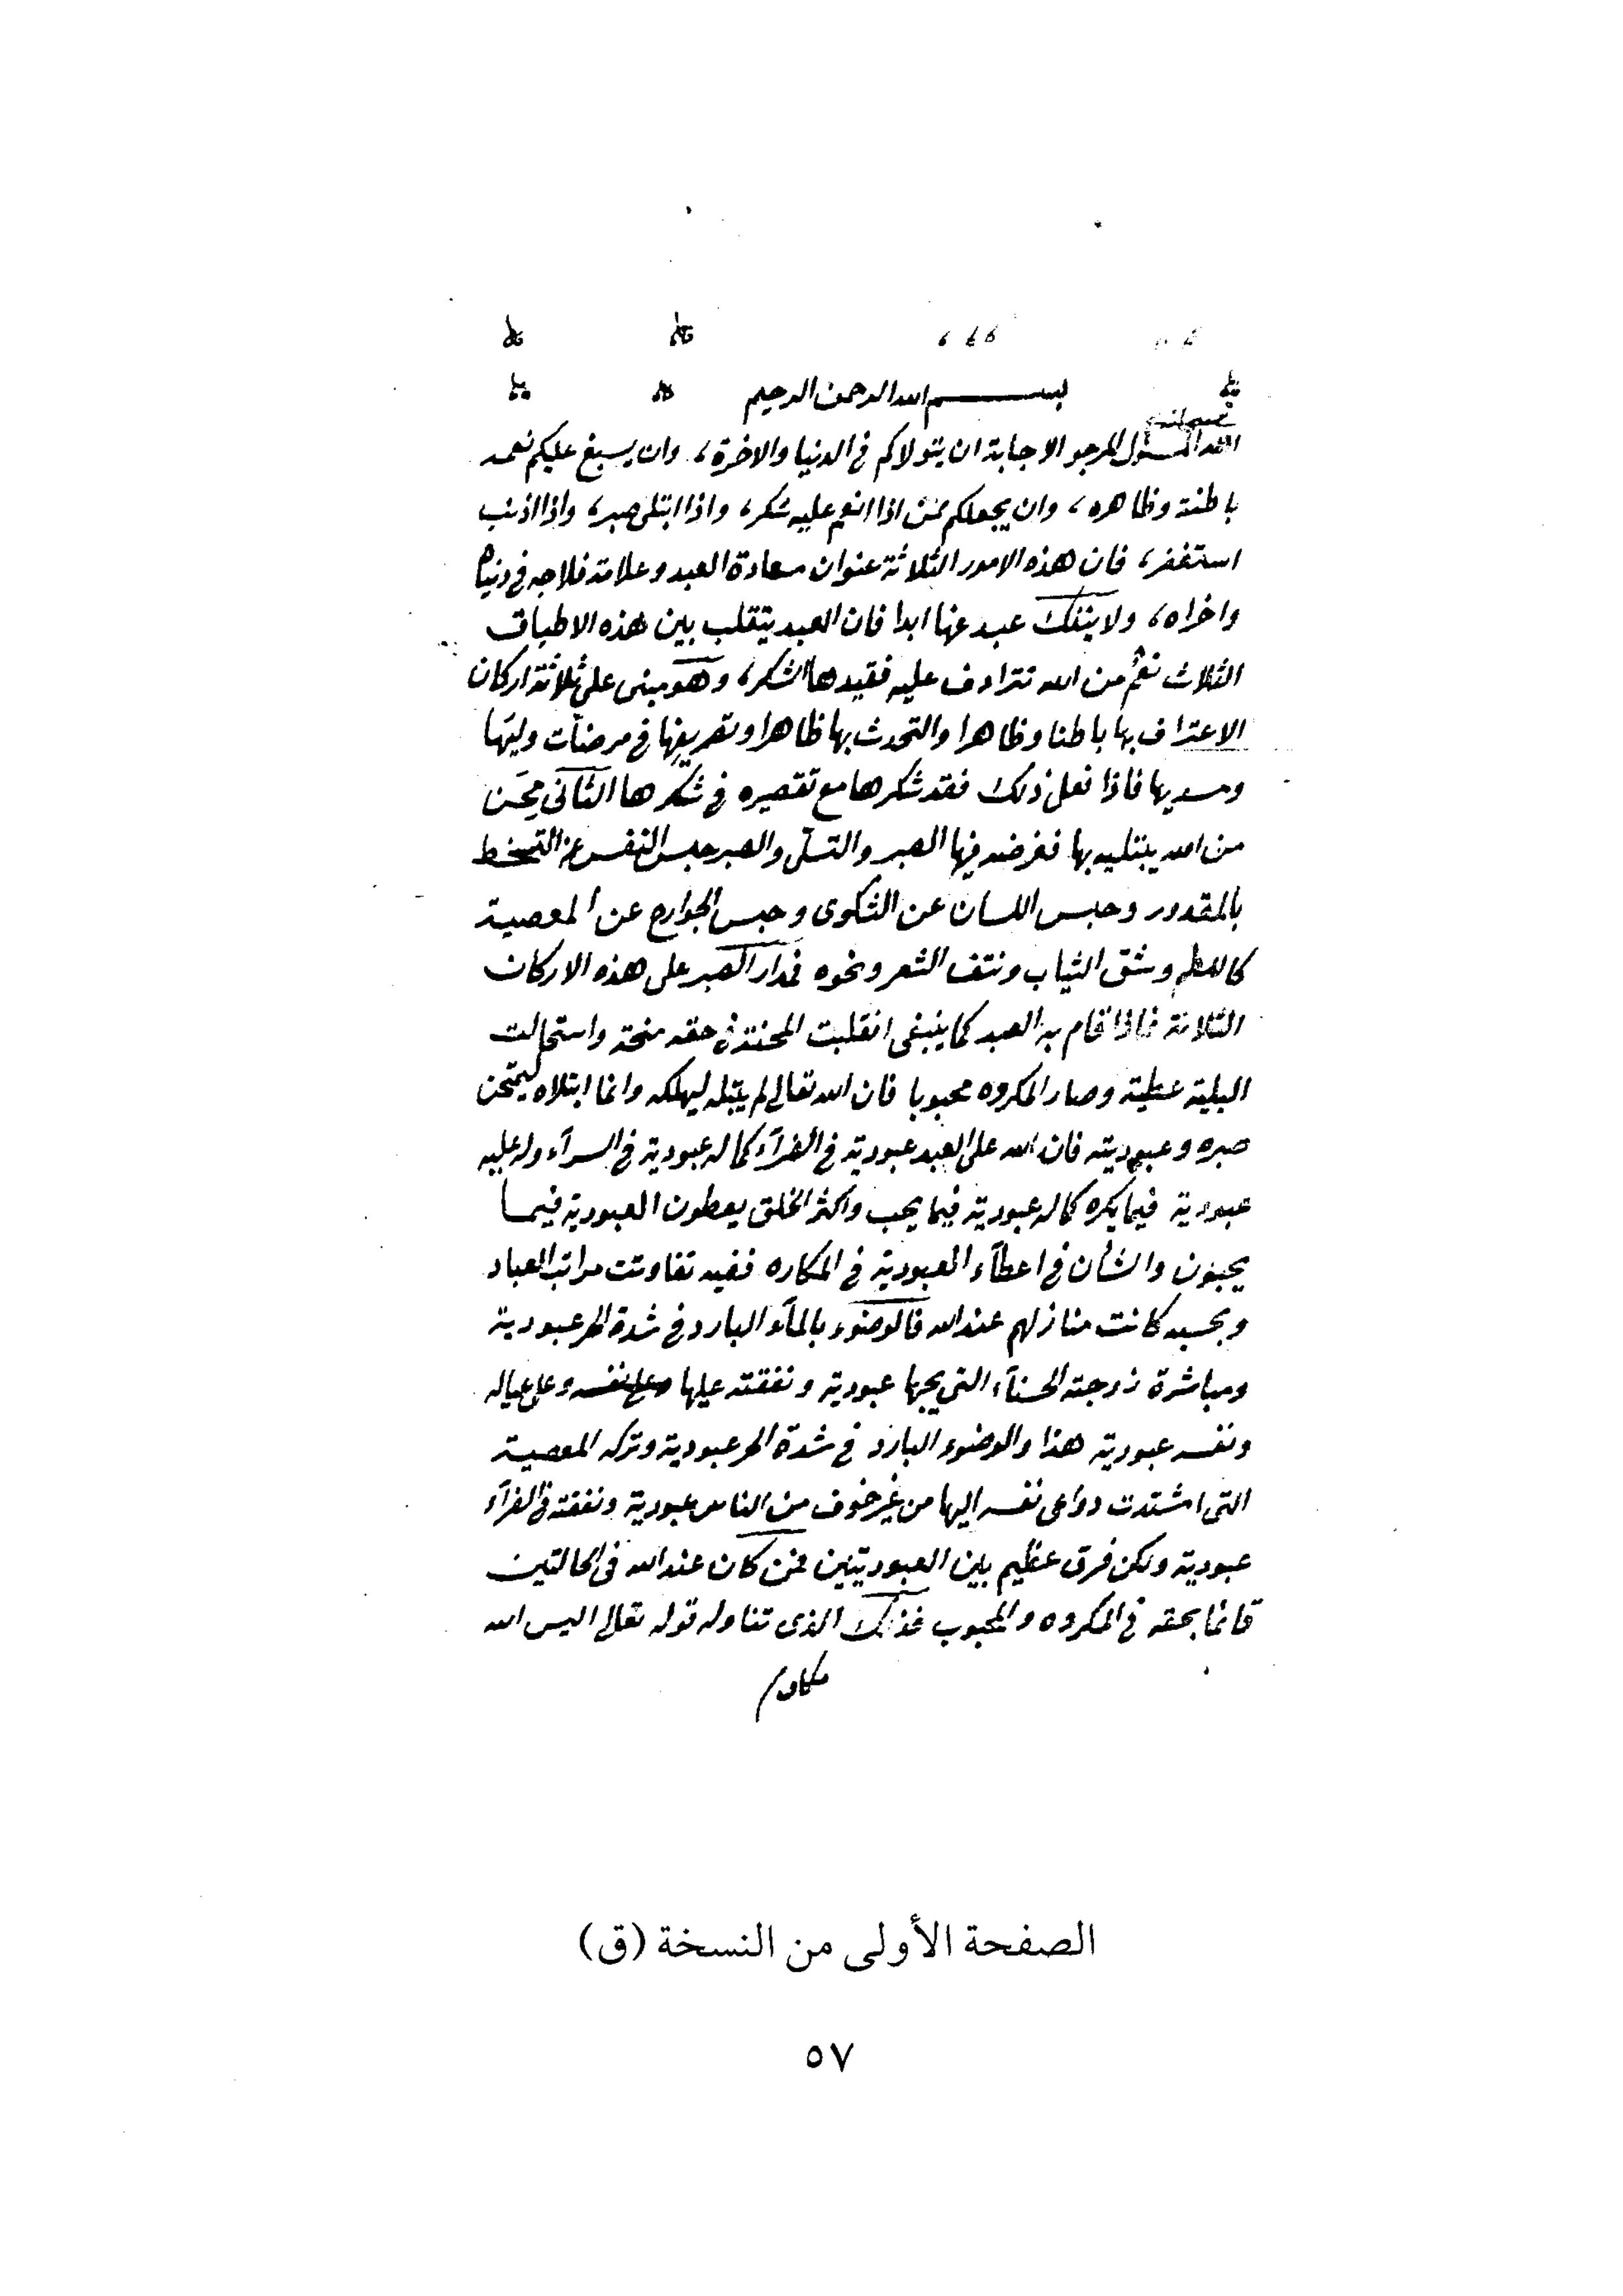 بسم الله الرحمن الرحيم
الله المسئول المرجو الاجابة ان يتولاكم في الدنيا والاخرة، وان يسبغ عليكم نعمه
باطنة وظاهره، وان يجعلكم ممن اذا انعم عليه شكر، واذا ابتلى صبر، واذا اذنب
استغفر، فان هذه الامور الثلاثة عنوان سعادة العبد وعلامة فلاحه في دنياه
واخراه، ولا ينفك عبد عنها ابدا فان العبد يتقلب بين هذه الاطباق
الثلاث نعم من الله تترادف عليه فقيدها الشكر، وهو مبنى على ثلاثة اركان
الاعتراف بها باطنا وظاهرا والتحدث بها ظاهرا وتصريفها في مرضات وليها
ومسديها فاذا فعل ذلك فقد شكرها مع تقصيره في شكرها الثاني محن
من الله يبتليه بها ففرضه فيها الصبر والتسلى والصبر حبس النفس عن التسخط
بالمقدور وحبس اللسان عن الشكوى وحبس الجوارح عن المعصية
كاللطم وشق الثياب ونتف الشعر ونحوه فمدار الصبر على هذه الاركان
الثلاثة فاذا قام به العبد كما ينبغى انقلبت المحنة في حقه منحة واستحالت
البلية عطية وصار المكروه محبوبا فان الله تعالى لم يبتله ليهلكه وانما ابتلاه ليمتحن
صبره وعبوديته فان لله على العبد عبودية في الضرآء كما له عبودية في السرآء وله عليه
عبودية فيما يكره كما له عبودية فيما يحب واكثر الخلق يعطون العبودية فيما
يحبون والشأن في اعطآء العبودية في المكاره ففيه تفاوتت مراتب العباد
وبحسبه كانت منازلهم عند الله فالوضوء بالمآء البارد في شدة الحر عبودية
ومباشرة زوجته الحسنآء التي يحبها عبودية ونفقته عليها وعلى عياله
ونفسه عبودية هذا والوضوء البارد في شدة الحر عبودية وتركه المعصية
التى اشتدت دواعى نفسه اليها من غير خوف من الناس عبودية ونفقته في الضرآء
عبودية ولكن فرق عظيم بين العبوديتين فمن كان عند الله في الحالتين
قائما بحقه في المكروه والمحبوب فذلك الذى تناوله قوله تعالى اليس الله
بكاف
الصفحة الأولى من النسخة (ق)
٥٧